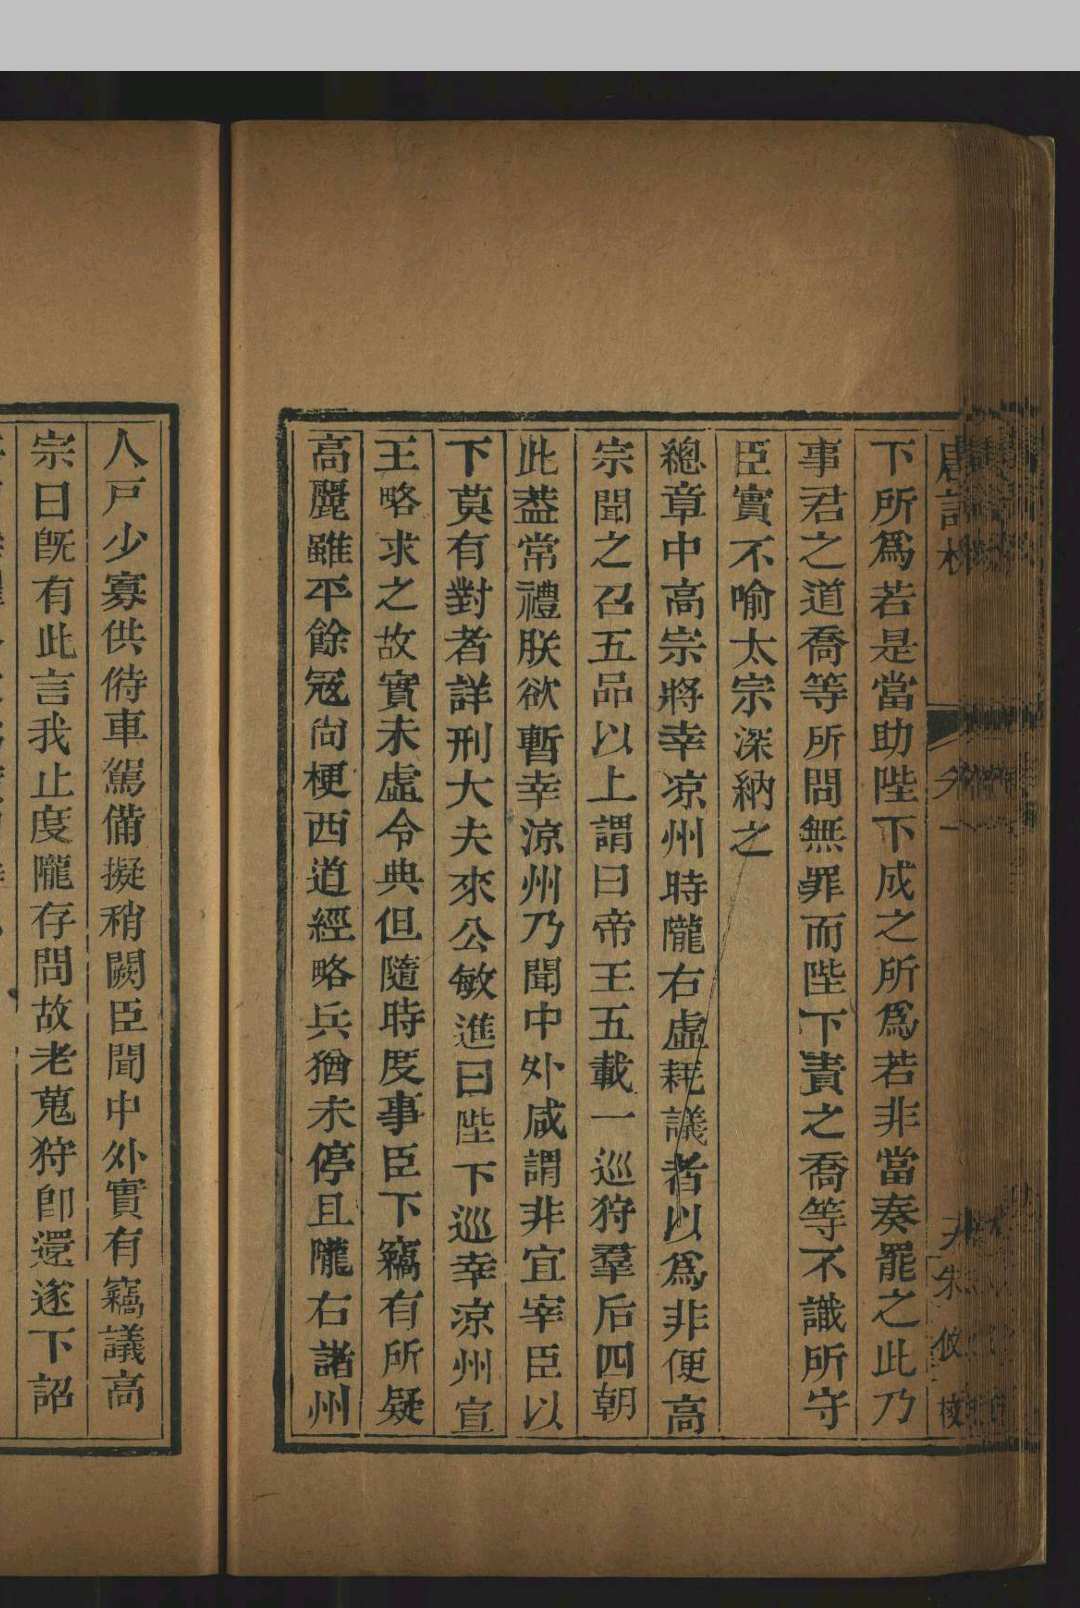 下所爲若是當助陛下成之所爲若非當奏罷之此乃
事君之道喬等所問無罪而陛下責之喬等不識所守
臣實不喻太宗深納之
總章中高宗將幸凉州時隴右虛耗議者以爲非便高
宗聞之召五品以上謂曰帝王五載一巡狩羣后四朝
此葢常禮朕欲暫幸涼州乃聞中外咸謂非宜宰臣以
下莫有對者詳刑大夫來公敏進曰陛下巡幸涼州宣
王略求之故實未虛令典但隨時度事臣下竊有所疑
高麗雖平餘冦尙梗西道經略兵猶未停且隴右諸州
人戸少寡供偫車駕備擬稍闕臣聞中外實有竊議高
宗曰旣有此言我止度隴存問故老蒐狩卽還遂下詔